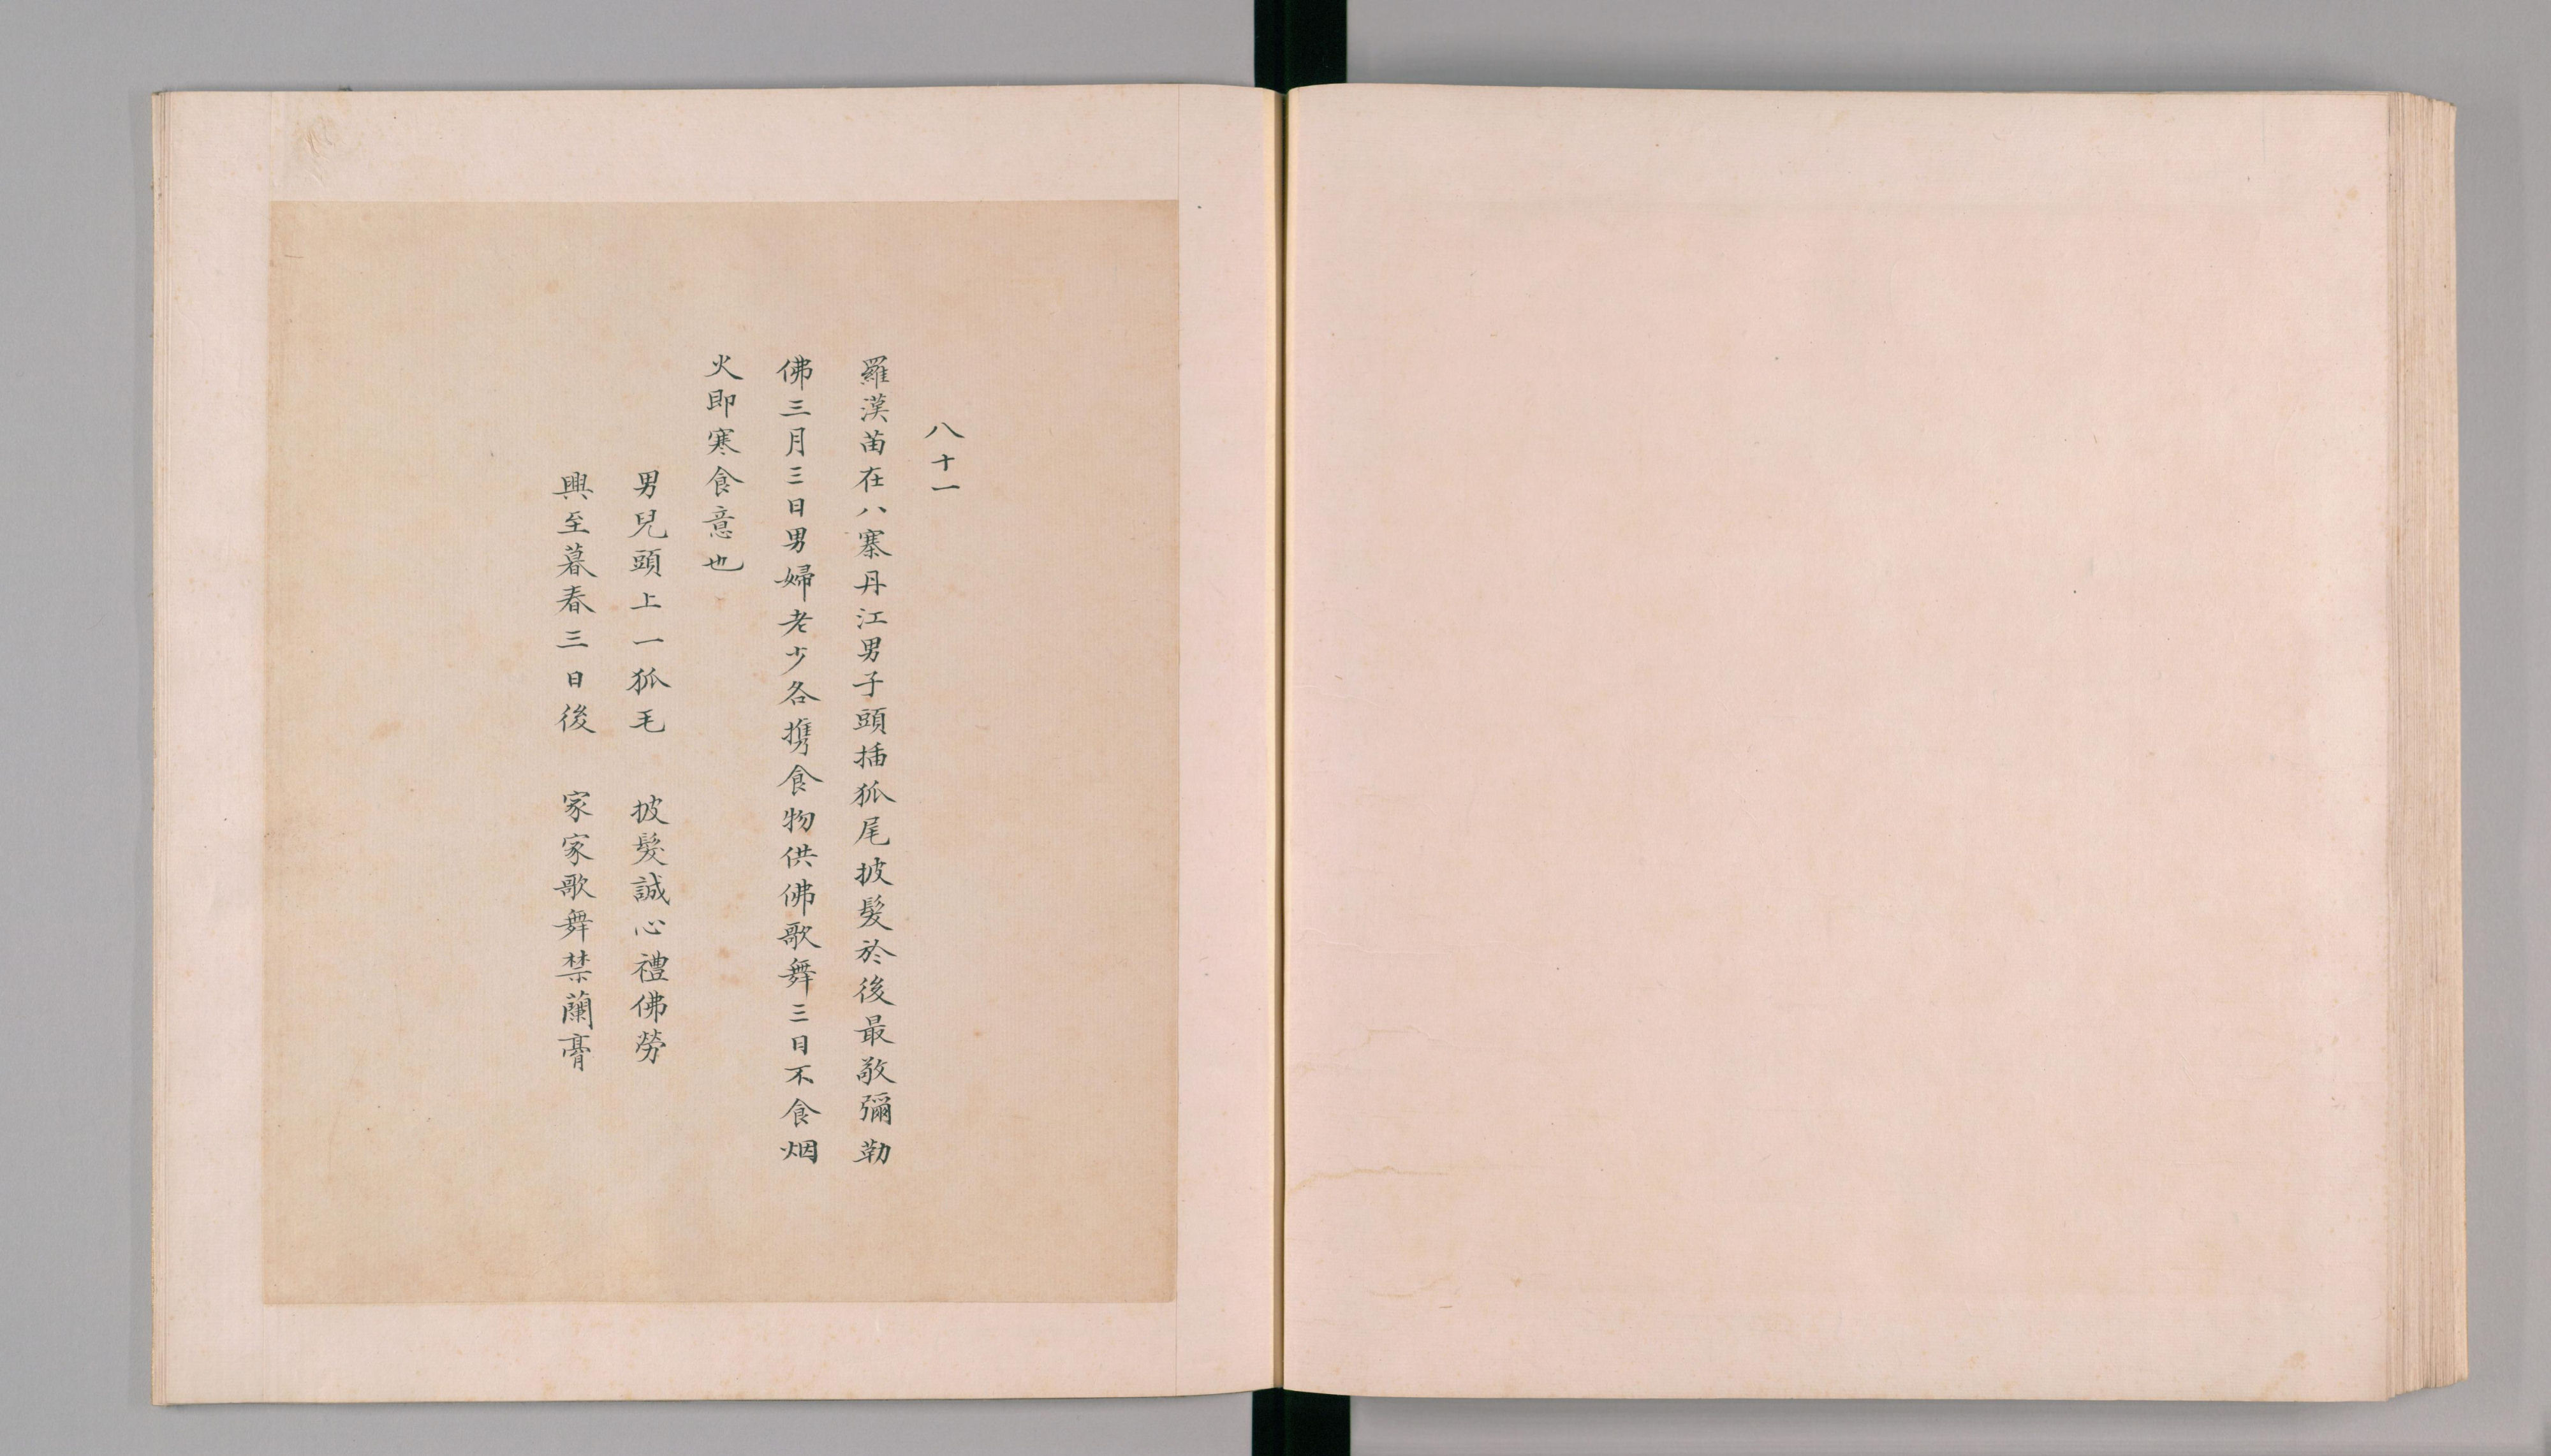 八十一
羅漢苗在八寨丹江男子頭插狐尾披髮於後最敬彌勒
佛三月三日男婦老少各攜食物供佛歌舞三日不食烟
火即寒食意也
男兒頭上一狐毛　披髮誠心禮佛勞
興至暮春三日後　家家歌舞禁蘭膏